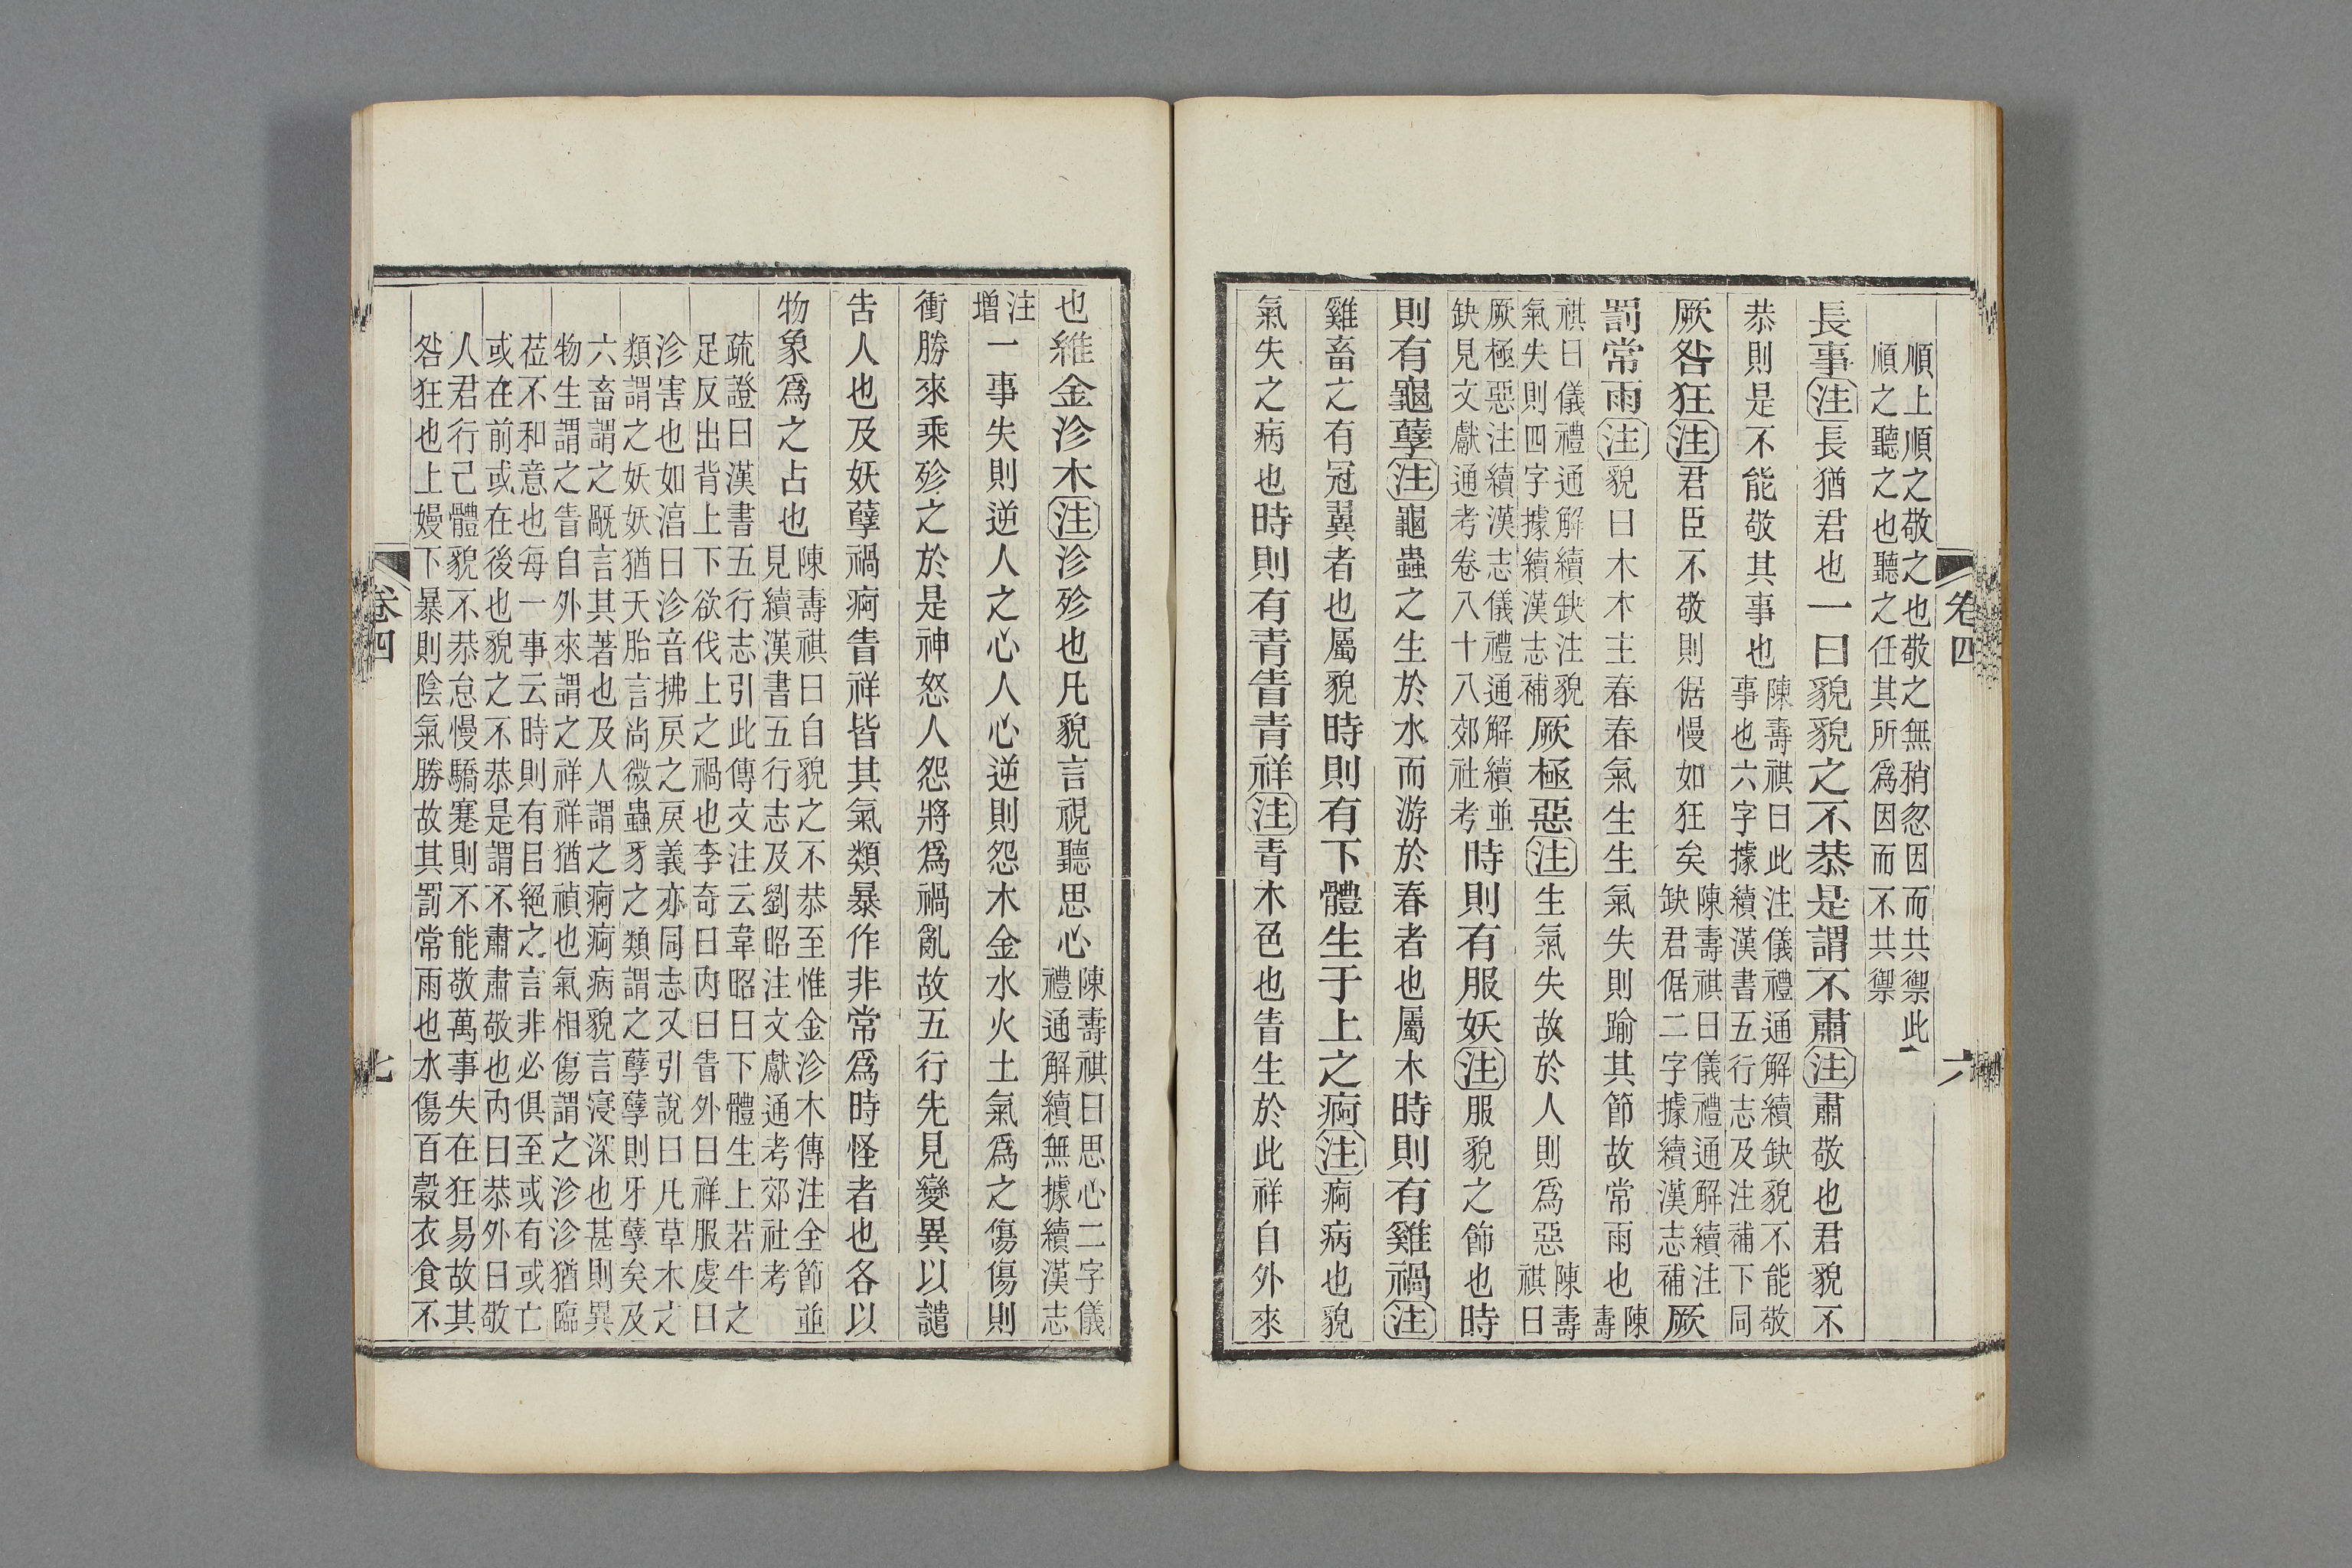 卷四
六
順上順之敬之也敬之無稍忽因而共禦此
順之聽之也聽之任其所爲因而不共禦
長事注長猶君也一曰貌貌之不恭是謂不肅注肅敬也君貌不
恭則是不能敬其事也
陳壽祺曰此注儀禮通解續缺貌不能敬
事也六字據續漢書五行志及注補下同
厥咎狂注君臣不敬則倨慢如狂矣
陳壽祺曰儀禮通解續注
缺君倨二字據續漢志補
厥
罰常雨注貌曰木木主春春氣生生氣失則踰其節故常雨也
陳
壽
祺曰儀禮通解續缺注貌
氣失則四字據續漢志補
厥極惡注生氣失故於人則爲惡
陳壽
祺曰
厥極惡注續漢志儀禮通解續並
缺見文獻通考卷八十八郊社考
時則有服妖注服貌之飾也時
則有龜孽注龜蟲之生於水而游於春者也屬木時則有雞禍注
雞畜之有冠翼者也屬貌時則有下體生于上之痾注痾病也貌
氣失之病也時則有青眚青祥注青木色也眚生於此祥自外來
也維金沴木注沴殄也凡貌言視聽思心
陳壽祺曰思心二字儀
禮通解續無據續漢志
注
增
一事失則逆人之心人心逆則怨木金水火土氣爲之傷傷則
衝勝來乘殄之於是神怒人怨將爲禍亂故五行先見變異以譴
告人也及妖孽禍痾眚祥皆其氣類暴作非常爲時怪者也各以
物象爲之占也
陳壽祺曰自貌之不恭至惟金沴木傳注全節並
見續漢書五行志及劉昭注文獻通考郊社考
疏證曰漢書五行志引此傳文注云韋昭曰下體生上若牛之
足反出背上下欲伐上之禍也李奇曰內曰眚外曰祥服虔曰
沴害也如淊曰沴音拂戾之戾義亦同志又引說曰凡草木之
類謂之妖妖猶夭胎言尚微蟲豸之類謂之孽孽則牙孽矣及
六畜謂之旤言其著也及人謂之痾痾病貌言寖深也甚則異
物生謂之眚自外來謂之祥祥猶禎也氣相傷謂之沴沴猶臨
莅不和意也每一事云時則有㠯絕之言非必俱至或有或亡
或在前或在後也貌之不恭是謂不肅肅敬也內曰恭外曰敬
人君行己體貌不恭怠慢驕蹇則不能敬萬事失在狂易故其
咎狂也上嫚下暴則陰氣勝故其罰常雨也水傷百穀衣食不
卷四
七